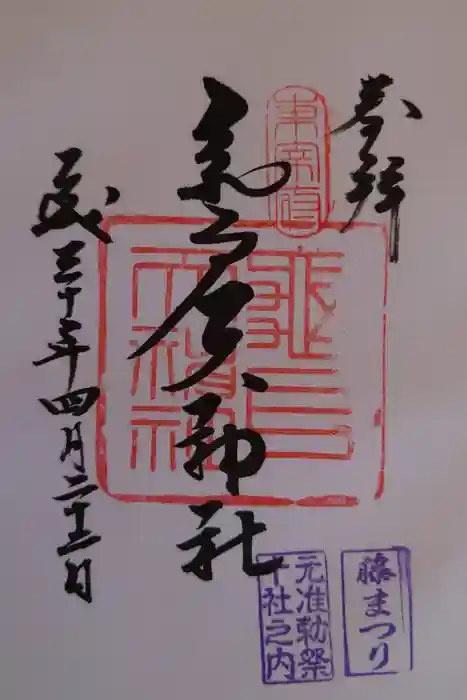 奉拝
東宰府
亀戸天神社
亀戸
天神社
平成三十年四月二十二日
藤まつり
元准勅祭
十社之内